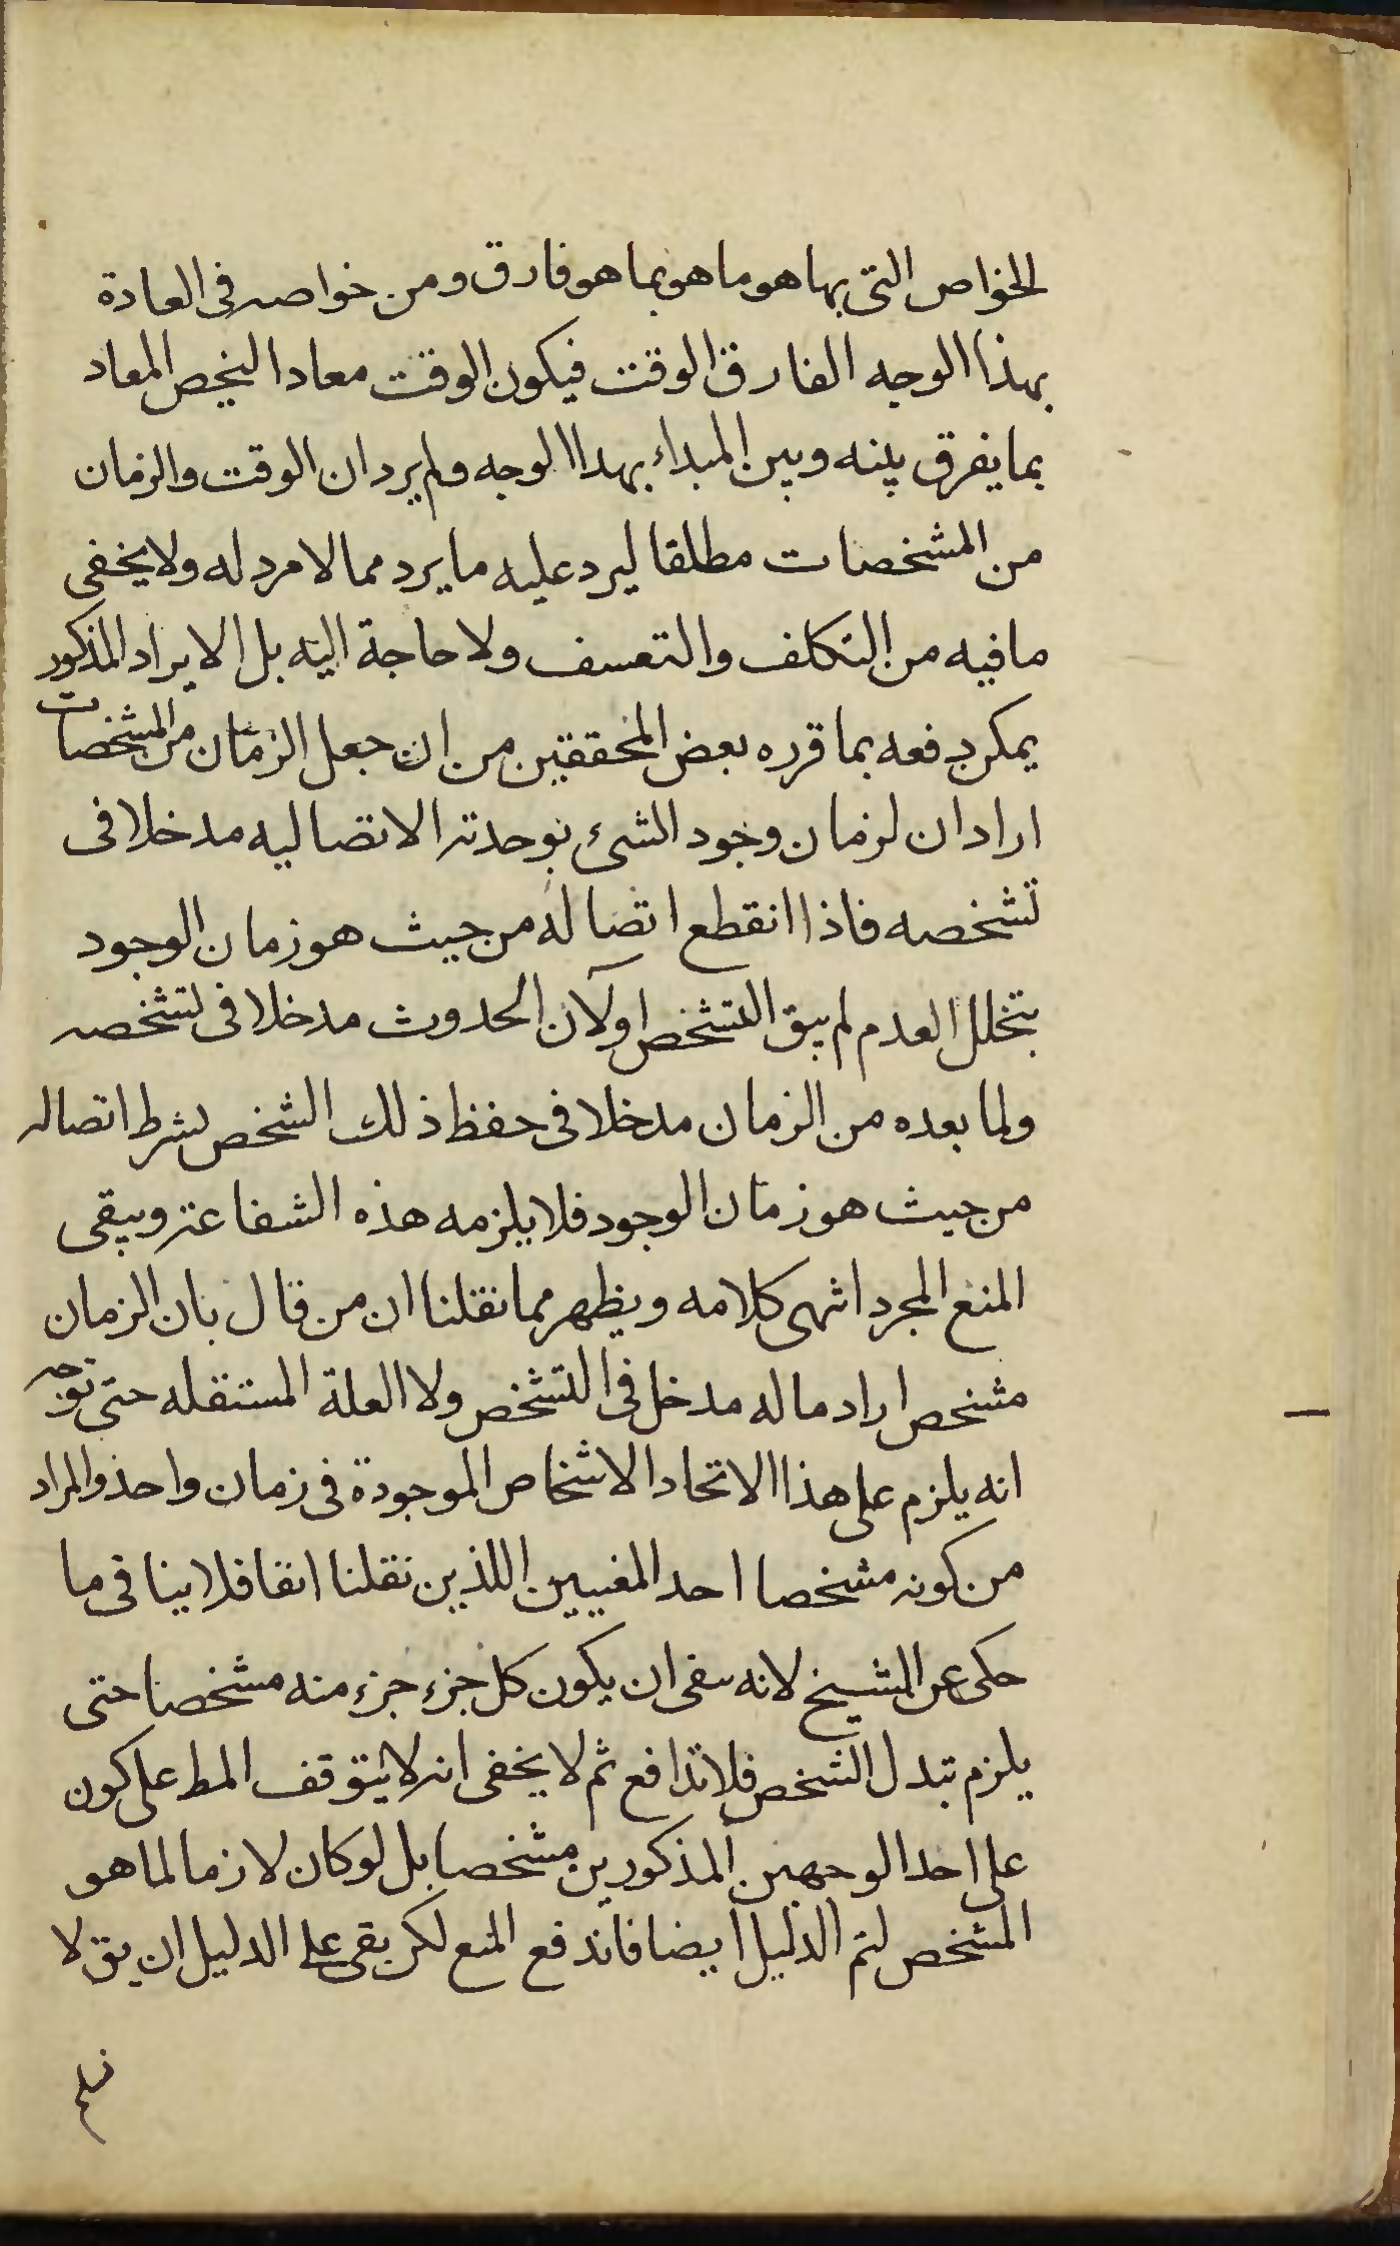 الخواص التى بها هو ما هو بما هو فارق ومن خواصه فى العادة
بهذا الوجه الفارق الوقت فيكون الوقت معادا ليخص المعاد
بما يفرق بينه وبين المبداء بهدا الوجه ولم يرد ان الوقت والزمان
من المشخصات مطلقا ليرد عليه ما يرد مما لا مرد له ولا يخفى
ما فيه من التكلف والتعسف ولا حاجة اليه بل الايراد المذكور
يمكن دفعه بما قرره بعض المحققين من ان جعل الزمان من المشخصات
اراد ان لزمان وجود الشىء بوحدته الاتصاليه مدخلا فى
تشخصه فاذا انقطع اتصاله من حيث هو زمان الوجود
بتخلل العدم لم يبق التشخص او لآن الحدوث مدخلا فى تشخصه
ولما بعده من الزمان مدخلا فى حفظ ذلك الشخص بشرط اتصاله
من حيث هو زمان الوجود فلا يلزمه هذه الشفاعة ويبقى
المنع المجرد انتهى كلامه ويظهر مما نقلنا ان من قال بان الزمان
مشخص اراد ماله مدخل فى التشخص ولا العلة المستقله حتى توجه
انه يلزم على هذا الاتحاد الاشخاص الموجودة فى زمان واحد والمراد
من كونه مشخصا احد المغيين اللذين نقلنا انفا فلا ينافى ما
حكى عن الشيخ لانه سفى ان يكون كل جزء جزء منه مشخصا حتى
يلزم تبدل الشخص فلا تدافع ثم لا يخفى انه لا يتوقف المط على كون
على احد الوجهين المذكورين مشخصا بل لو كان لازما لما هو
المشخص لتم الدليل ايضا فاندفع المنع لكن بقى على الدليل ان يق لا
نلم